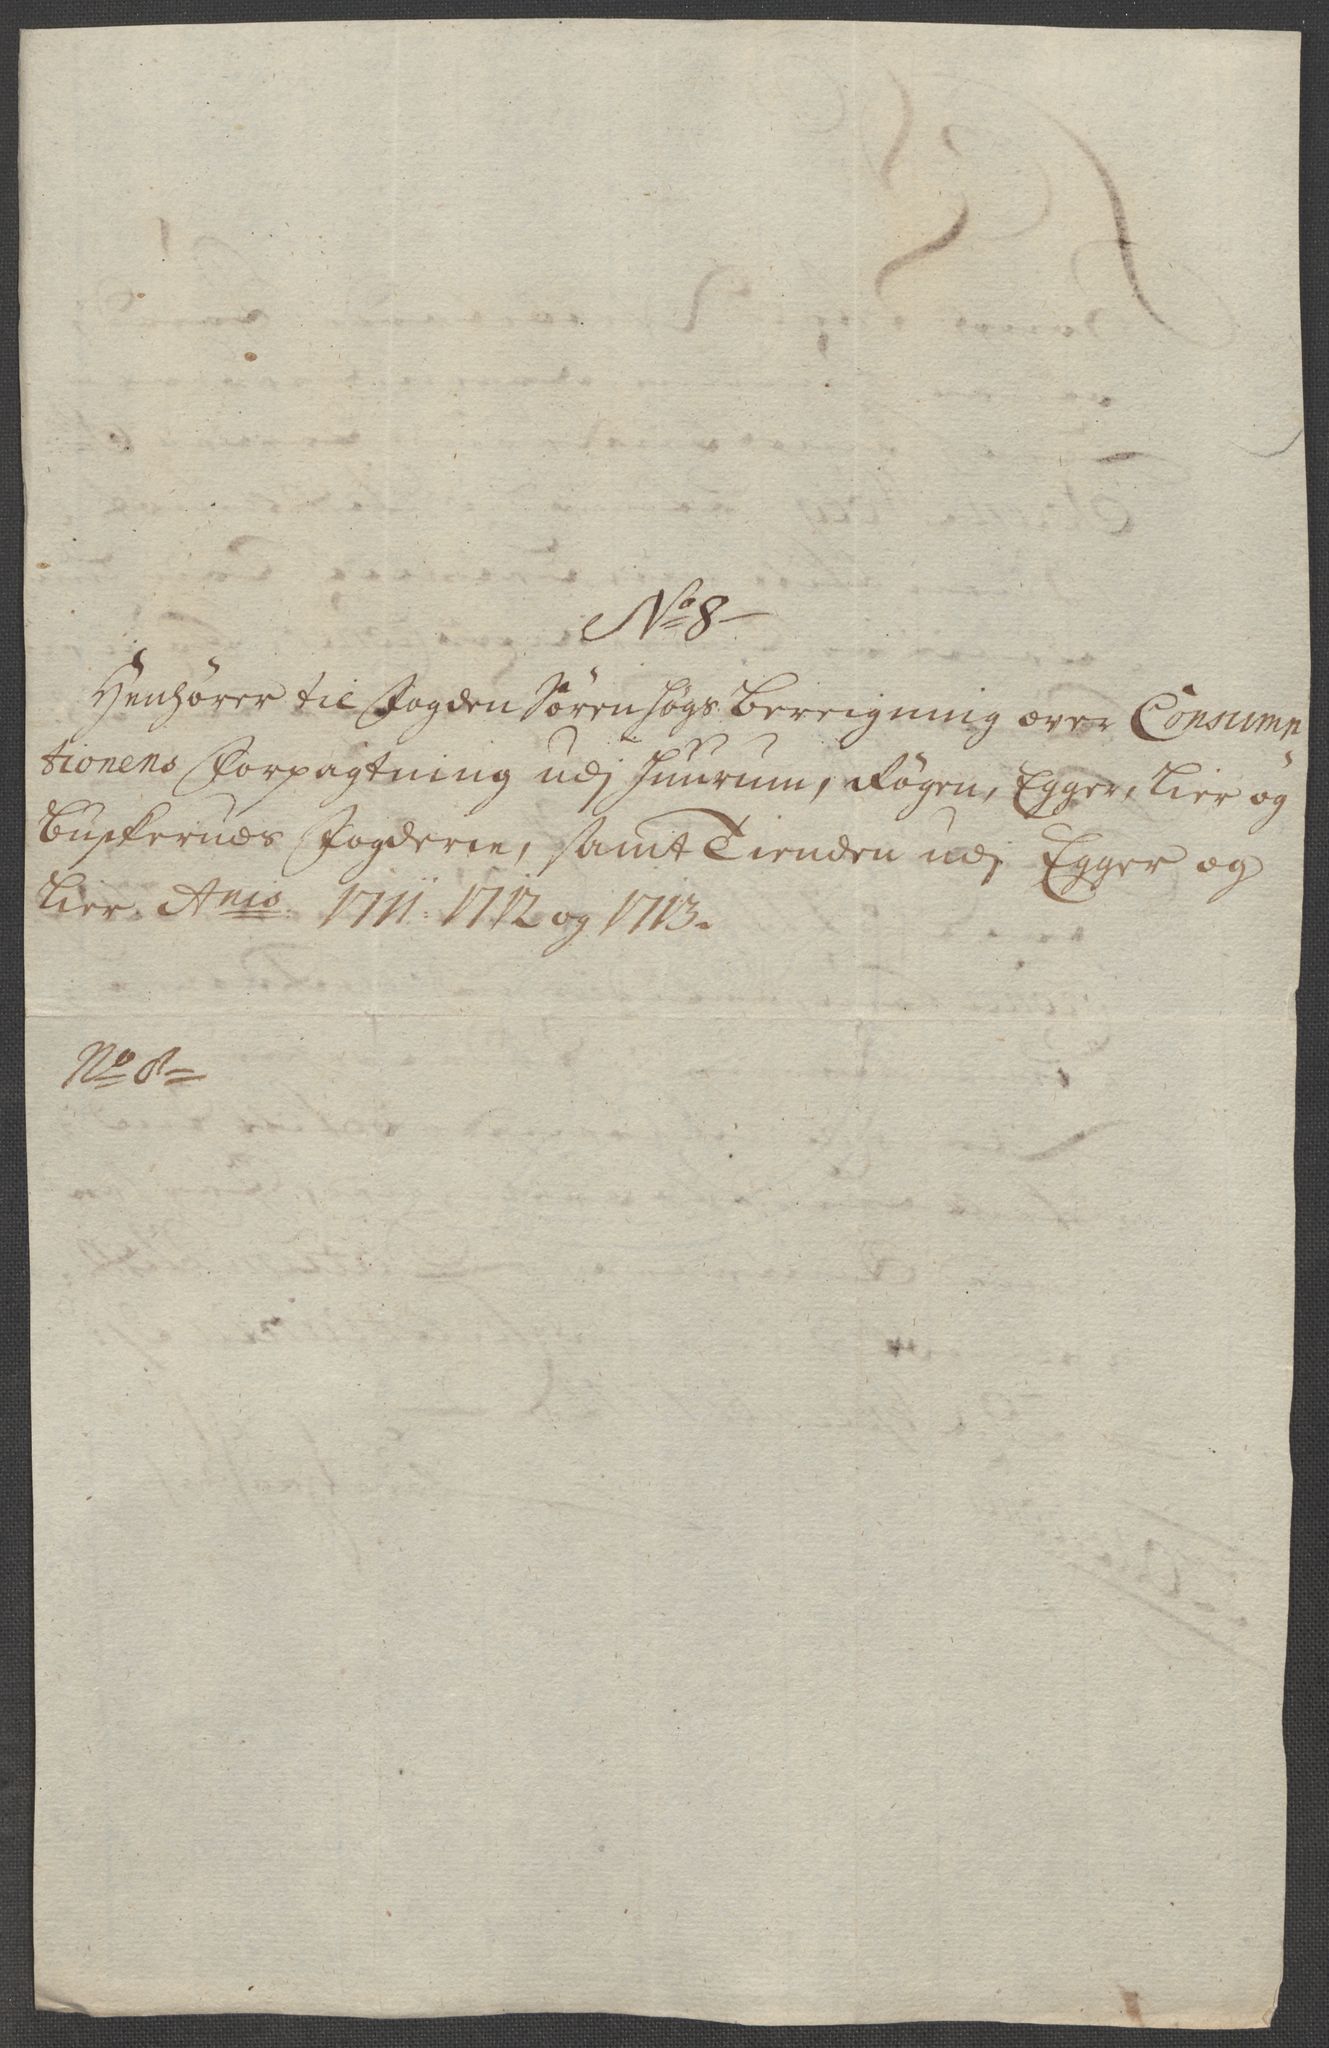 No 8
Henhörer til Fogden Sören Högs bereigning over Consump
tionens Forpagtning udj Huurum, Rögen, Egger, Lier og
Buskeruds Fogderie, samt Tienden udj Egger og
Lier. Anis 1711. 1712 og 1713.
No 8